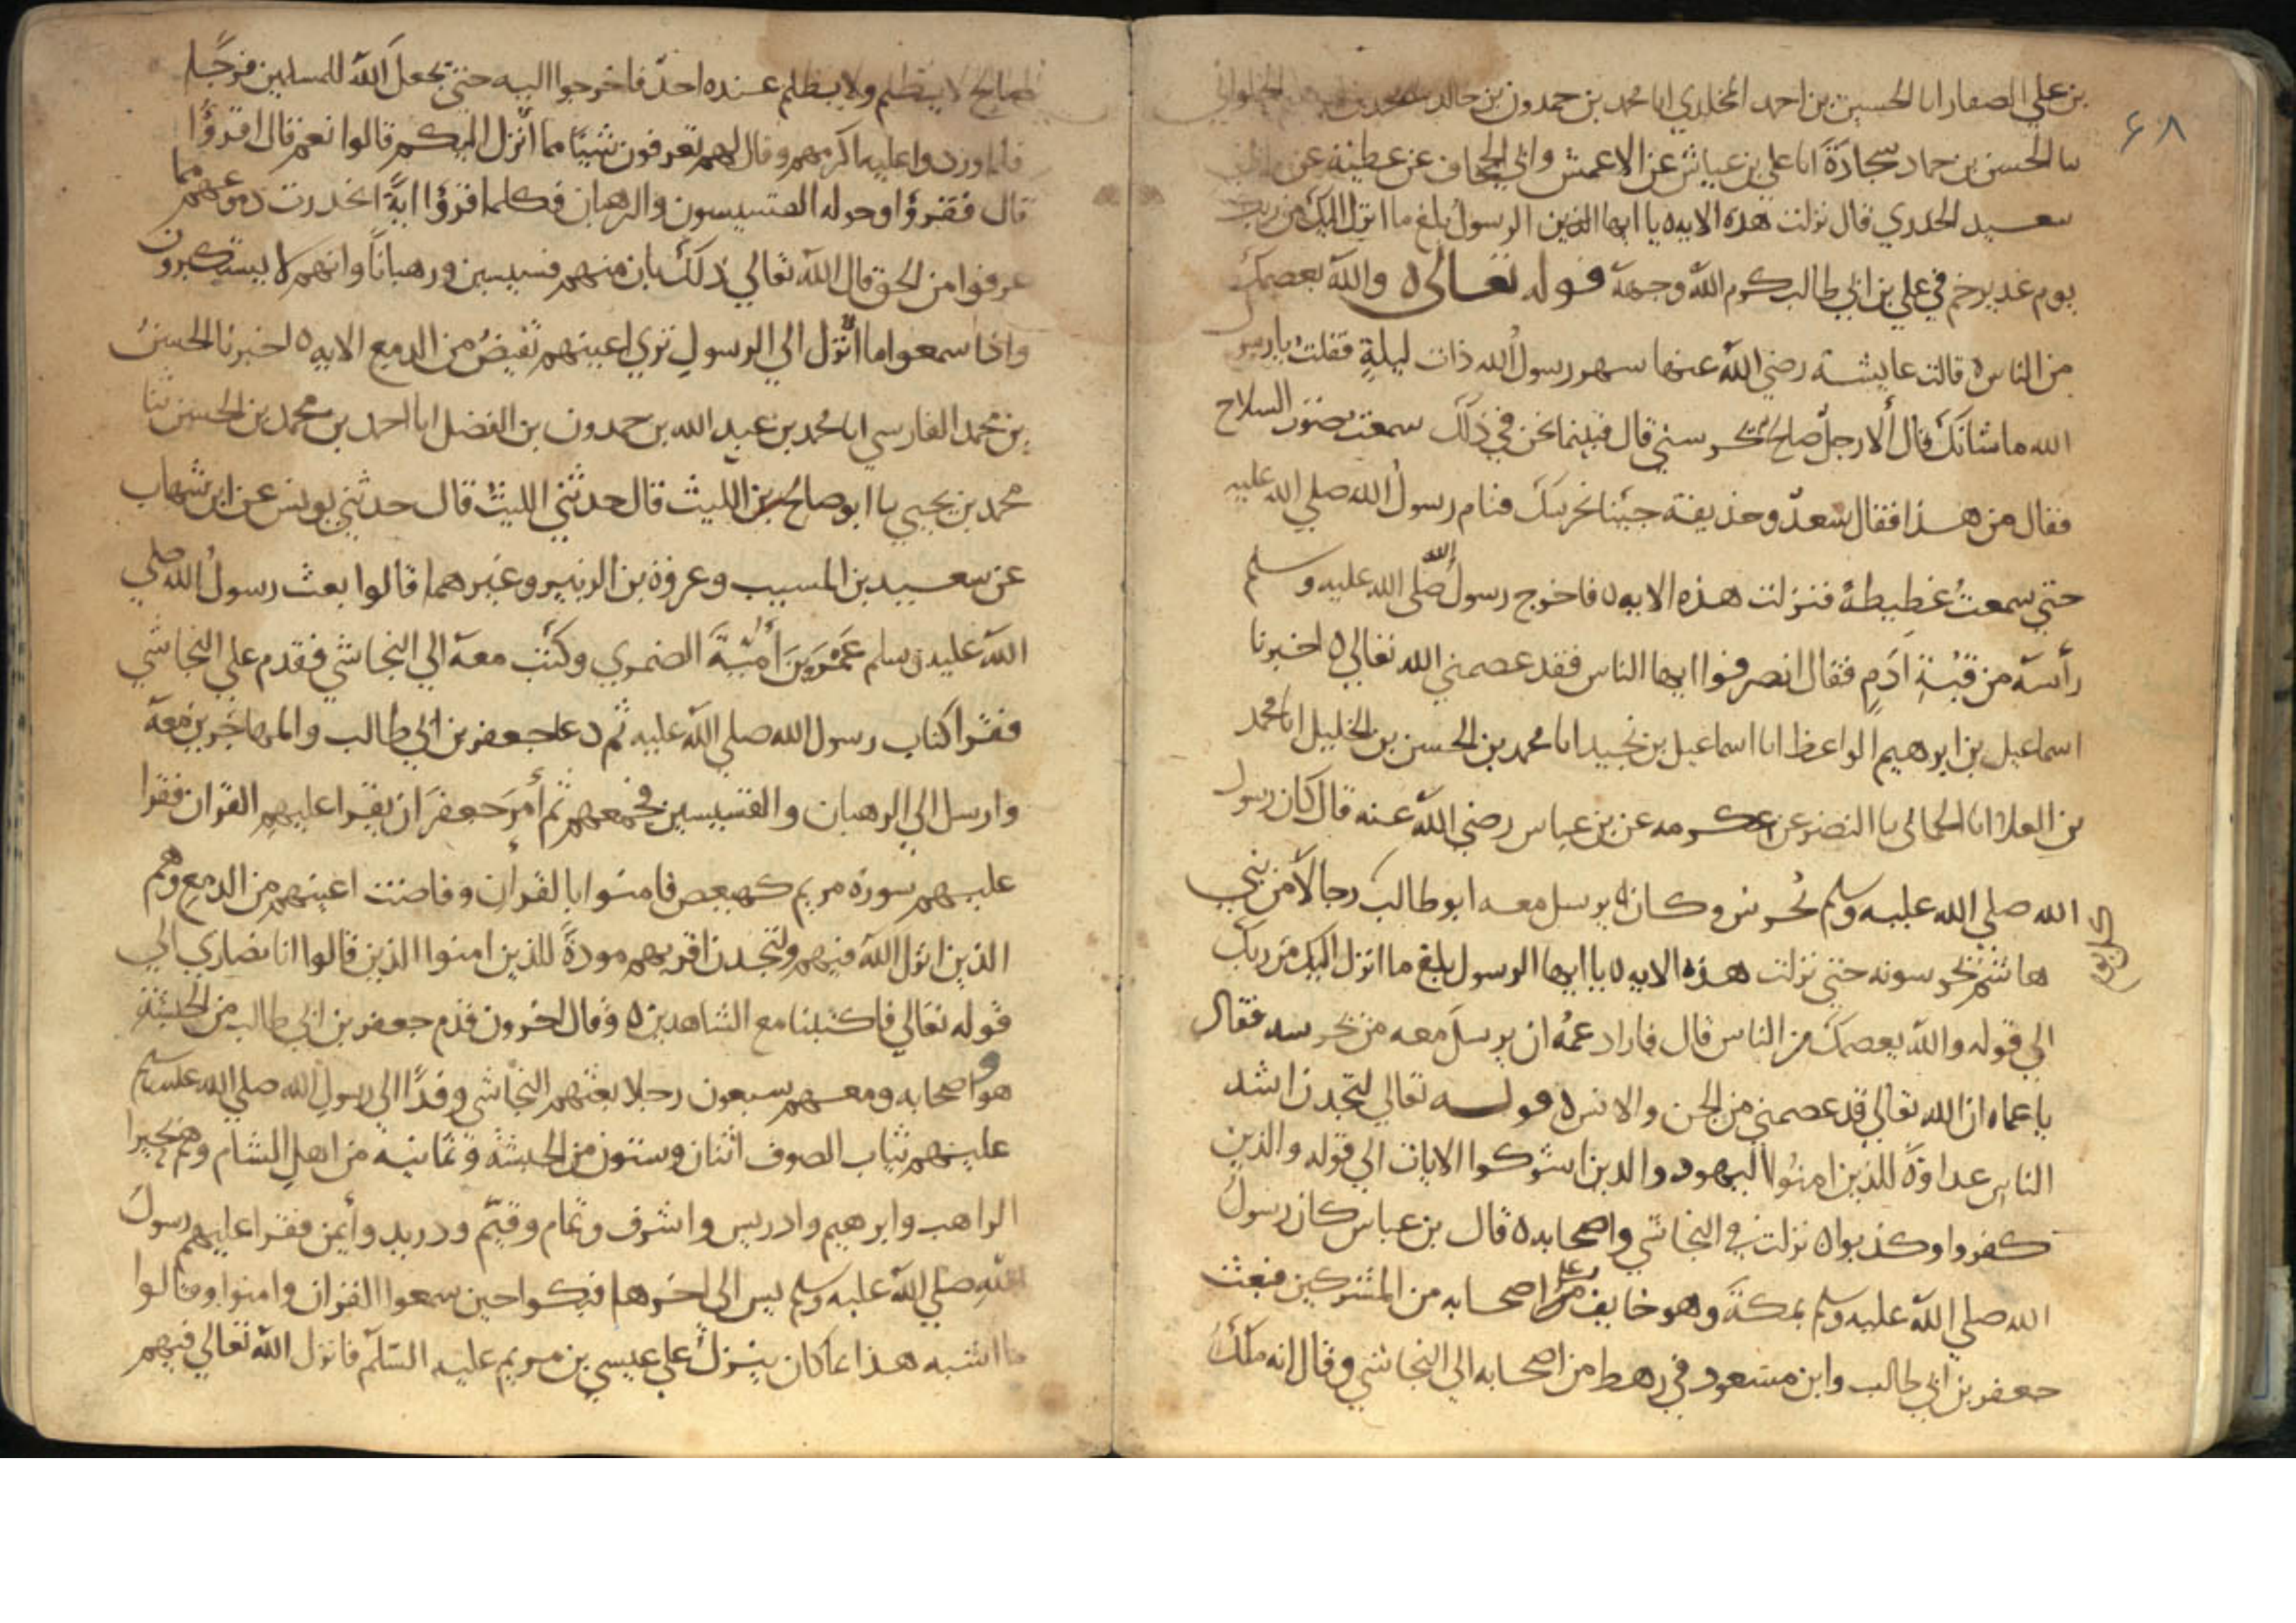 ٦٨
بن علي الصفار انا الحسين بن احمد المخلدي انا محمد بن حمدون بن خالد محمد بن الحلواني
نا الحسن بن حماد سجادة انا علي بن عياش عن الاعمش وابي الجحاف عن عطية عن ابي
سعيد الخدري قال نزلت هذه الايه يا ايها الذين الرسول بلغ ما انزل اليك من ربك
يوم غدير خم في علي بن ابي طالب كرم الله وجهه قوله تعالى والله يعصمك
من الناس قالت عايشة رضي الله عنها سهر رسول الله ذات ليلة فقلت يا رسول
الله ما شانك قال ألا رجل صالح يحرسني قال فبينما نحن في ذلك سمعت صوت السلاح
فقال من هذا فقال سعد وحذيفة جينا نحرسك فنام رسول الله صلي الله عليه
حتي سمعت غطيطه فنزلت هذه الايه فاخرج رسول الله صلي الله عليه وسلم
رأسه من قبة ادم فقال انصرفوا ايها الناس فقد عصمني الله تعالي اخبرنا
اسماعيل بن ابرهيم الواعظ انا اسماعيل بن نجيد انا محمد بن الحسن بن الخليل انا محمد
بن العلا انا الحماني نا النضر عن عكرمه عن بن عباس رضي الله عنه قال كان رسول
الله صلي الله عليه وسلم يحرس وكان يرسل معه ابو طالب رجالا من بني
هاشم يحرسونه حتي نزلت هذه الايه يا ايها الرسول بلغ ما انزل اليك من ربك
الي قوله والله يعصمك من الناس قال فاراد عمه ان يرسل معه من يحرسه فقال
يا عماه ان الله تعالي قد عصمني من الجن والانس قوله تعالي لتجدن اشد
الناس عداوة للذين امنوا اليهود والذين اشركوا الايات الي قوله والذين
كفروا وكذبوا نزلت في النجاشي واصحابه قال بن عباس كان رسول
الله صلي الله عليه وسلم بمكة وهو خايف على اصحابه من المشركين فبعث
جعفر بن ابي طالب وابن مسعود في رهط من اصحابه الي النجاشي وقال انه ملك
صالح لا يظلم ولا يظلم عنده احد فاخرجوا اليه حتي يجعل الله للمسلمين فرجا
فلما وردوا عليه اكرمهم وقال لهم تعرفون شيئا مما انزل اليكم قالوا نعم قال اقرؤا
قال فقرؤا وحوله القسيسون والرهبان فكلما قرؤا اية انحدرت دموعهم مما
عرفوا من الحق قال الله تعالي ذلك بان منهم قسيسين ورهبانا وانهم لا يستكبرون
واذا سمعوا ما انزل الي الرسول تري اعينهم تفيض من الدمع الايه اخبرنا الحسن
بن محمد الفارسي انا محمد بن عبد الله بن حمدون بن الفضل انا احمد بن محمد بن الحسن ثنا
محمد بن يحيي نا ابو صالح بن الليث قال حدثني الليث قال حدثني يونس عن ابن شهاب
عن سعيد بن المسيب وعروة بن الزبير وغيرهما قالوا بعث رسول الله صلي
الله عليه وسلم عمرو بن امية الضمري وكتب معه الي النجاشي فقدم علي النجاشي
فقرا كتاب رسول الله صلي الله عليه ثم دعا جعفر بن ابي طالب والمهاجرين معه
وارسل الي الرهبان والقسيسين فجمعهم ثم أمر جعفر ان يقرا عليهم القران فقرا
عليهم سورة مريم كهيعص فامنوا بالقران وفاضت اعينهم من الدمع وهم
الذين انزل الله فيهم ولتجدن اقربهم مودة للذين امنوا الذين قالوا انا نصاري الي
قوله تعالي فاكتبنا مع الشاهدين وقال اخرون قدم جعفر بن ابي طالب من الحبشة
هو واصحابه ومعهم سبعون رجلا بعثهم النجاشي وفدا الي رسول الله صلي الله عليه وسلم
عليهم ثياب الصوف اثنان وستون من الحبشة وثمانية من اهل الشام وهم بحيرا
الراهب وابرهيم وادريس واشرف وتمام وقيم ودريد وأيمن فقرا عليهم رسول
الله صلي الله عليه وسلم يس الي اخرها فبكوا حين سمعوا القران وامنوا وقالوا
ما اشبه هذا بما كان ينزل علي عيسي بن مريم عليه السلم فانزل الله تعالي فيهم